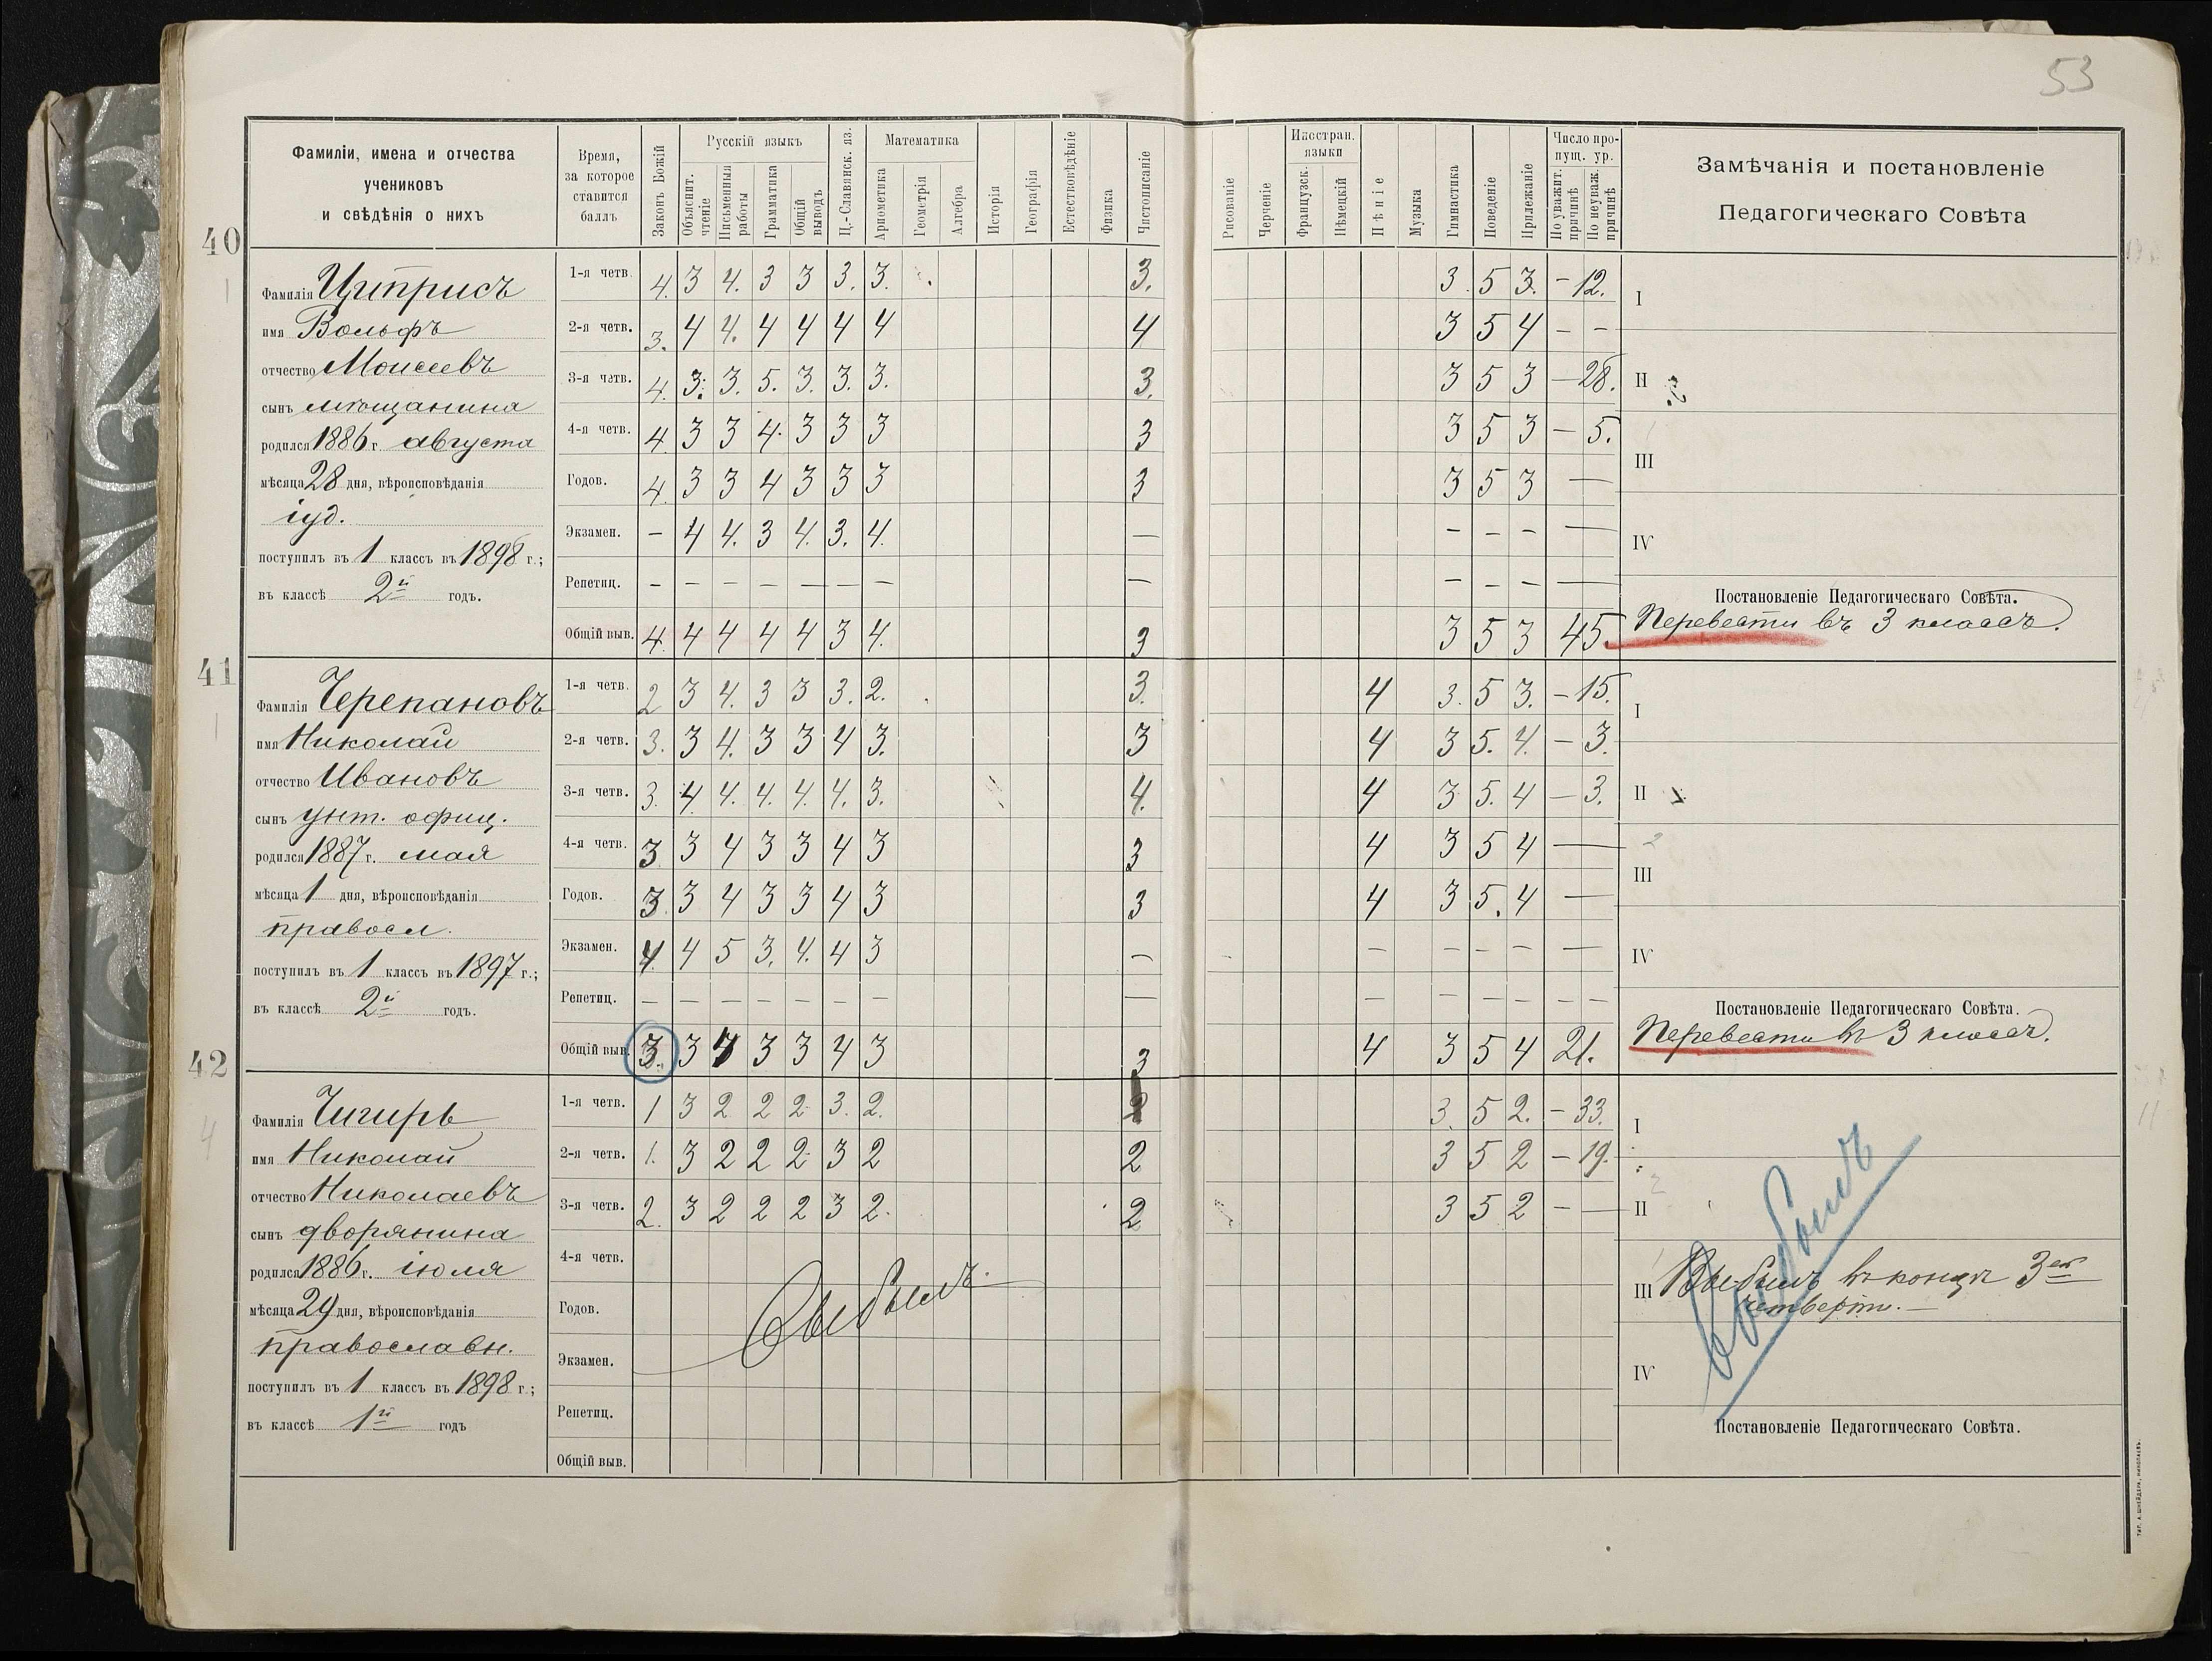 53
Фамиліи, имена и отчества
учениковъ
и свѣдѣнія о нихъ
Время,
за которое
ставится
баллъ
Законъ Божій
Русскій языкъ
Объяснит. чтеніе
Письменныя работы
Грамматика
Общій выводъ
Ц.-Славянск. яз.
Математика
Ариѳметика
Геометрія
Алгебра
Исторія
Географія
Естествовѣдѣніе
Физика
Чистописаніе
Рисованіе
Черченіе
Иностран. языки
Французск.
Нѣмецкій
Пѣніе
Музыка
Гимнастика
Поведеніе
Прилежаніе
Число пропущ. ур.
По уважит. причинѣ
По неуваж. причинѣ
Замѣчанія и постановленіе
Педагогическаго Совѣта
40
Фамилія Циприсъ
имя Вольфъ
отчество Моисеевъ
сынъ мѣщанина
родился 1886 г. августа
мѣсяца 28 дня, вѣроисповѣданія
іуд.
поступилъ въ 1 классъ въ 1898 г.;
въ классѣ 2й годъ.
1-я четв. 4. 3 4. 3 3 3. 3. 3. 3. 5 3. – 12.
2-я четв. 3. 4 4. 4 4 4 4 4 3 5 4 – –
3-я четв. 4. 3. 3. 5. 3. 3. 3. 3. 3 5 3 – 28.
4-я четв. 4. 3 3 4. 3 3 3 3 3 5 3 – 5.
Годов. 4. 3 3 4 3 3 3 3 3 5 3 —
Экзамен. – 4 4. 3 4. 3. 4. — – – – —
Репетиц. – – – – – – – — – – – —
Общій выв. 4. 4 4 4 4 3 4. 3 3 5 3 45.
I
II
III
IV
Постановленіе Педагогическаго Совѣта.
Перевести въ 3 классъ.
41
Фамилія Черепановъ
имя Николай
отчество Ивановъ
сынъ унт. офиц.
родился 1887 г. мая
мѣсяца 1 дня, вѣроисповѣданія
правосл.
поступилъ въ 1 классъ въ 1897 г.;
въ классѣ 2й годъ.
1-я четв. 2 3 4. 3 3 3. 2. 3. 4 3. 5 3. – 15.
2-я четв. 3. 3 4. 3 3 4 3. 3 4 3 5. 4. – 3.
3-я четв. 3. 4 4. 4. 4. 4. 3. 4. 4 3 5. 4 – 3.
4-я четв. 3 3 4 3 3 4 3 3 4 3 5 4 —
Годов. 3 3 4 3 3 4 3 3 4 3 5. 4 —
Экзамен. 4 4 5 3. 4. 4 3 – – – – – —
Репетиц. – – – – – – – — – – – – – –
Общій выв. 3. 3 4 3 3 4 3 3 4 3 5 4 21.
I
II
III
IV
Постановленіе Педагогическаго Совѣта.
Перевести въ 3 классъ.
42
Фамилія Чигирь
имя Николай
отчество Николаевъ
сынъ дворянина
родился 1886 г. іюля
мѣсяца 29 дня, вѣроисповѣданія
православн.
поступилъ въ 1 классъ въ 1898 г.;
въ классѣ 1й годъ
1-я четв. 1 3 2 2 2 3. 2. 3. 5 2. – 33.
2-я четв. 1. 3 2 2 2 3 2 2 3 5 2 – 19.
3-я четв. 2. 3 2 2 2 3 2. 2 3 5 2 – —
4-я четв.
Годов.
Экзамен.
Репетиц.
Общій выв.
Выбылъ.
I
II
III Выбылъ въ концѣ 3ей
четверти.
IV
Выбылъ
Постановленіе Педагогическаго Совѣта.
ТИП. А. ШНЕЙДЕРА, НИКОЛАЕВЪ.